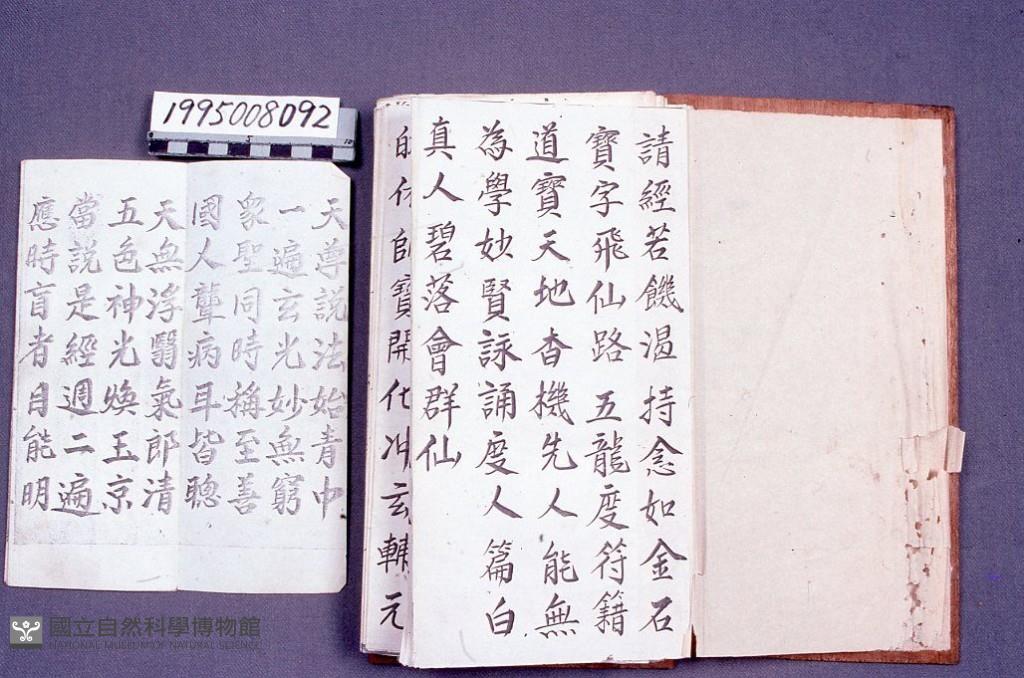 1995008092
請經若饑渴持念如金石
寶字飛仙路五龍度符籍
道寶天地杳機先人能無
為學妙賢詠誦度人篇白
真人碧落會群仙
師寶開化冲玄輔元
天尊說法始青中
一遍玄光妙無窮
衆聖同時稱至善
國人聾病耳皆聰
天無浮翳氣郎清
五色神光煥玉京
當說是經週二遍
應時盲者目能明
國立自然科學博物館
NATIONAL MUSEUM OF NATURAL SCIENCE